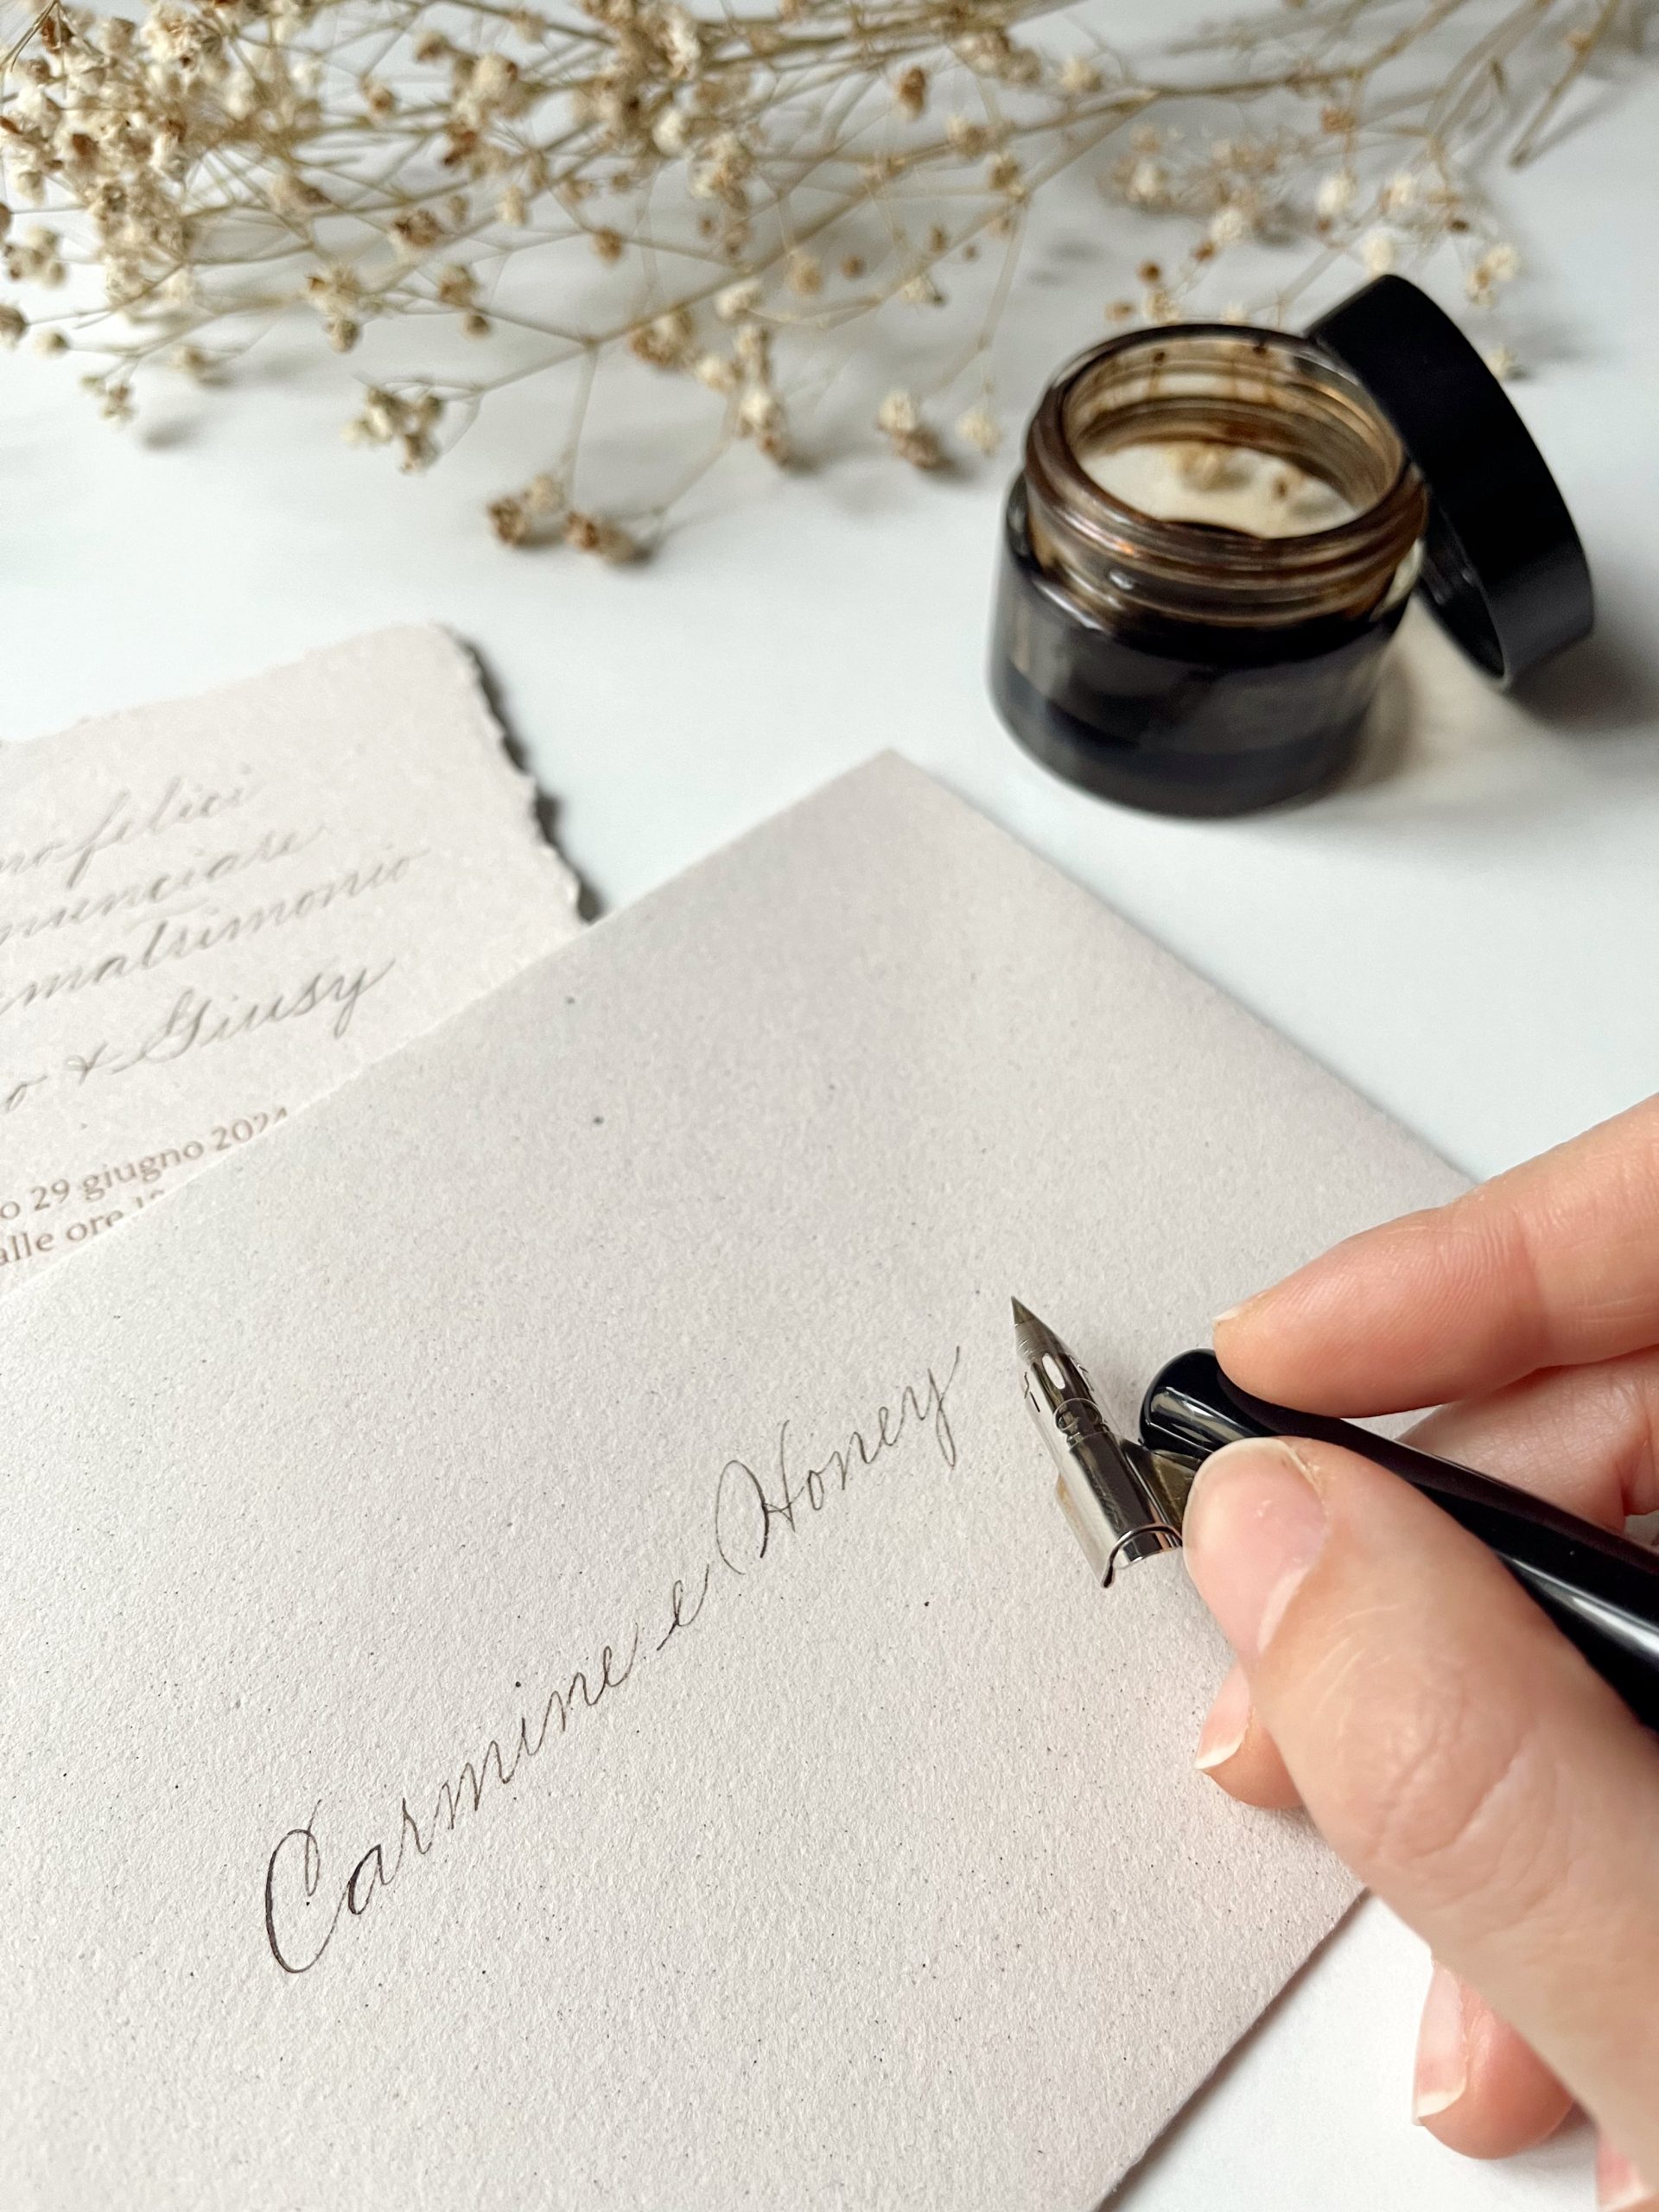 felici
annunciare
matrimonio
o & Giusy
o 29 giugno 2024
alle ore
Carmine e Honey